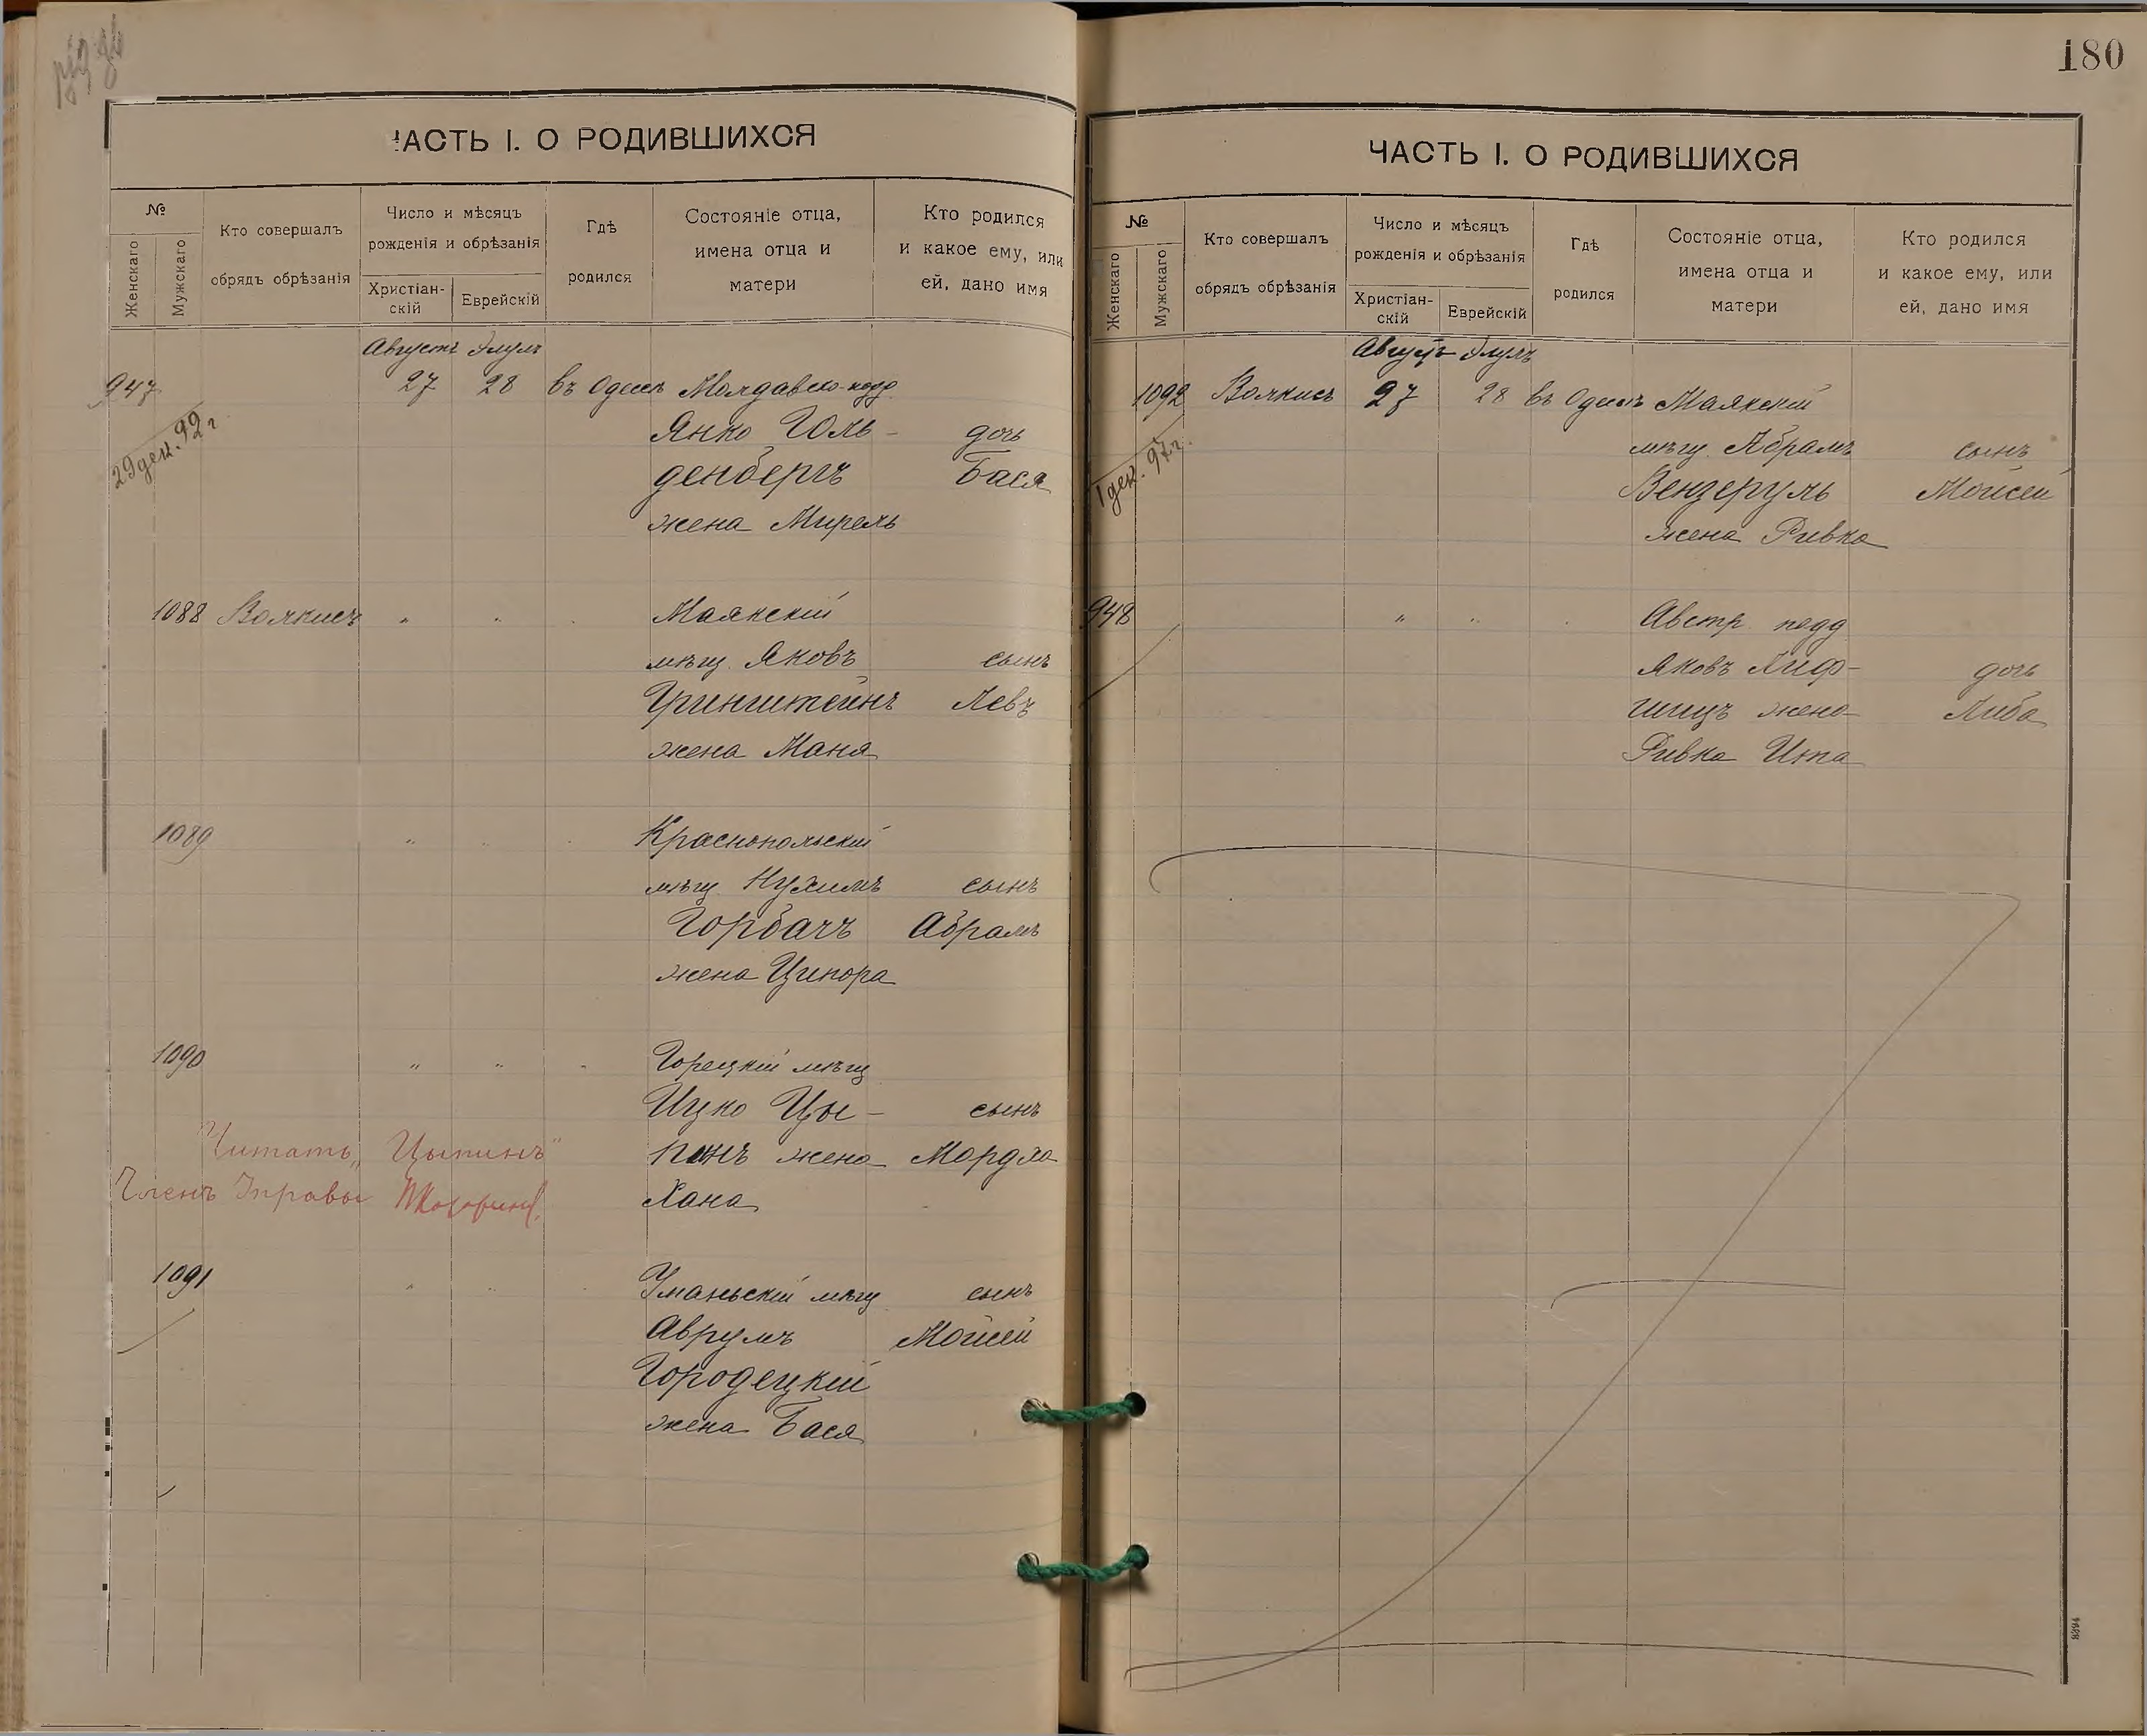 180
ЧАСТЬ I. О РОДИВШИХСЯ
№
Женскаго
Мужскаго
Кто совершалъ
обрядъ обрѣзанія
Число и мѣсяцъ
рожденія и обрѣзанія
Христіан-
скій
Еврейскій
Гдѣ
родился
Состояніе отца,
имена отца и
матери
Кто родился
и какое ему, или
ей, дано имя
Августъ Элулъ
947 27 28 въ Одессѣ Молдавско-подд.
29 дек. 92 г.
Янко Голь- дочь
денбергъ Бася
жена Мирель
1088 Волкисъ " " " Маякскій
мѣщ. Яковъ сынъ
Гринштейнъ Левъ
жена Маня
1089 " " " Краснопольскій
мѣщ. Нухимъ сынъ
Горбачъ Абрамъ
жена Ципора
1090 " " " Горецкій мѣщ
Ицко Цы- сынъ
Читать „Цыпинъ" пинъ жена Мордко
Членъ Управы Хана
1091 " " " Уманьскій мѣщ. сынъ
Аврумъ Мойсей
Городецкій
жена Бася
ЧАСТЬ I. О РОДИВШИХСЯ
№
Женскаго
Мужскаго
Кто совершалъ
обрядъ обрѣзанія
Число и мѣсяцъ
рожденія и обрѣзанія
Христіан-
скій
Еврейскій
Гдѣ
родился
Состояніе отца,
имена отца и
матери
Кто родился
и какое ему, или
ей, дано имя
Августъ Элулъ
1092 Волкисъ 27 28 въ Одессѣ Маякскій
1 дек. 97 г.
мѣщ. Абрамъ сынъ
Вензеруль Мойсей
жена Ривка
948 " " " Австр. подд
Яковъ Лиф- дочь
шицъ жена Либа
Ривка Ита